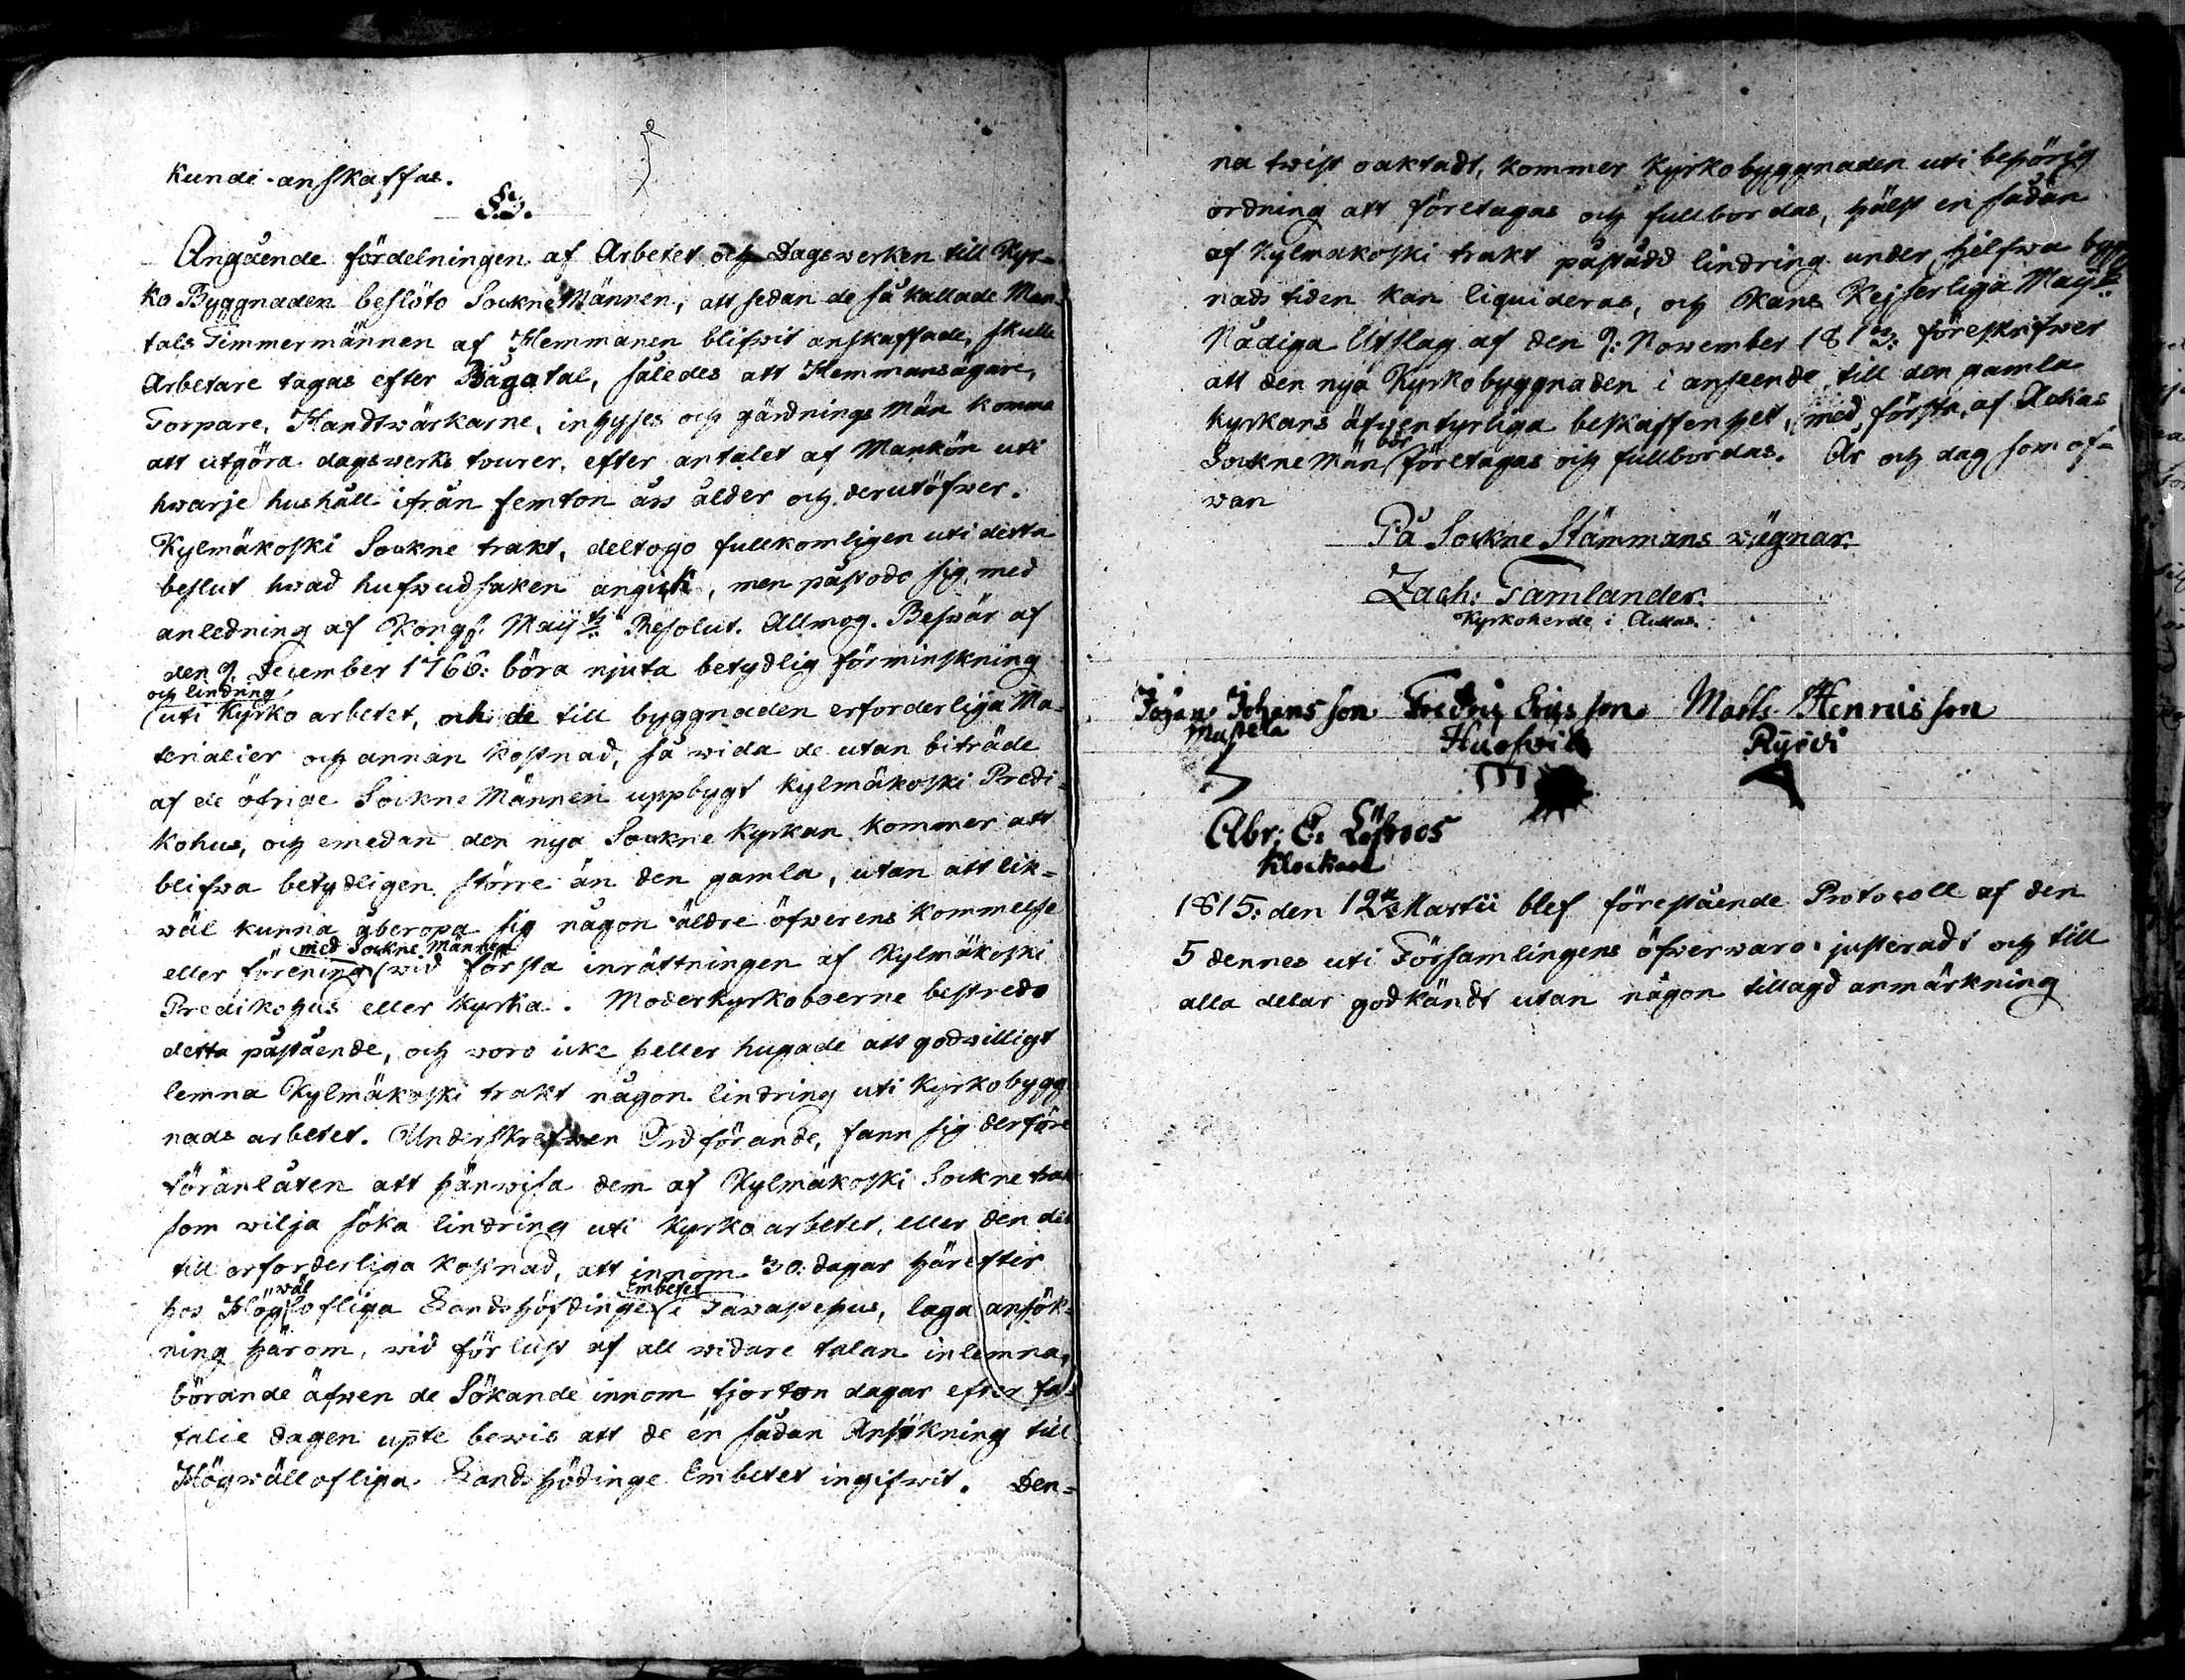 kunde anskaffas.
§ 5.
Angående fördelningen af Arbetet och Dagswerken till Kyr-
ko Byggnaden beslöto SockneMännen, att sedan de så kallade Man-
tals Timmermännen af Hemmanen blifwit anskaffade, skulle
Arbetare tagas efter Bågatal, således att Hemmansägare,
Torpare, Handtwärkarne, inhyses och gärdnings Män komma
att utgöra dagswerks tourer, efter antalet af Mankön uti
hwarje hushåll ifrån femton års ålder och derutöfwer.
Kylmäkoski Sockne trakt, deltogo fullkomligen uti detta
beslut hwad hufwudsaken angick, men påstodo sig med
anledning af Kongl. Maij:ts Resolut. Allmog. Beswär af
den 9. December 1766: böra njuta betydlig förminskning
och lindring
uti Kyrko arbetet, och de till byggnaden erforderliga Ma-
terialier och annan kostnad, så wida de utan biträde
af de öfrige SockneMännen uppbygt Kylmäkoski Predi-
kohus, och emedan den nya Sockne Kyrkan kommer att
blifwa betydligen större än den gamla, utan att lik-
wäl kunna åberopa sig någon äldre öfwerens kommelse
med Sockne Männen
eller förening wid första inrättningen af Kylmäkoski
Predikohus eller Kyrka. Moderkyrkoboerne bestredo
detta påstående, och woro icke heller hugade att godwilligt
lemna Kylmäkoski trakt någon lindring uti Kyrkobygg
nads arbetet. Underskrefwen Ordförande, fann sig derföre
föranlåten att hänwisa dem af Kylmäkoski Sockne trakt
som wilja söka lindring uti Kyrko arbetet, eller den der
till erforderliga kostnad, att innom 30: dagar härefter
wäl Embetet
hos Höglofliga Landshöfdinge i Tawastehus, laga ansök-
ning härom, wid förlust af all widare talan inlemna,
börande äfwen de Sökande innom fjorton dagar efter fa-
talie dagen upte bewis att de en sådan Ansökning till
Högwällofliga Landshödinge Embetet ingifwit. Den-
na twist oaktadt, kommer Kyrkobyggnaden uti behörig
ordning att företagas och fullbordas, hälst en sådan
af Kylmäkoski trakt påstådd lindring under sjelfwa bygg
nads tiden kan liquideras, och Hans Kejserliga Maij:ts
Nådiga Utslag af den 9: November 1813: föreskrifwer
att den nya Kyrkobyggnaden i anseende till den gamla
kyrkans äfwentyrliga beskaffenhet, med första, af Ackas
bör
SockneMän företagas och fullbordas. År och dag som of-
wan
På Sockne Stämmans wägnar.
Zach: Tamlander.
Kyrkoherde i Ackas.
Johan Johansson Fredric Ericsson Matts Henricsson
Mustela
Abr: E: Löfroos
Klockare
1815: den 12te Martii blef förestående Protocoll af den
5 dennes uti Församlingens öfwerwaro justeradt och till
alla delar godkändt utan någon tillagd anmärkning